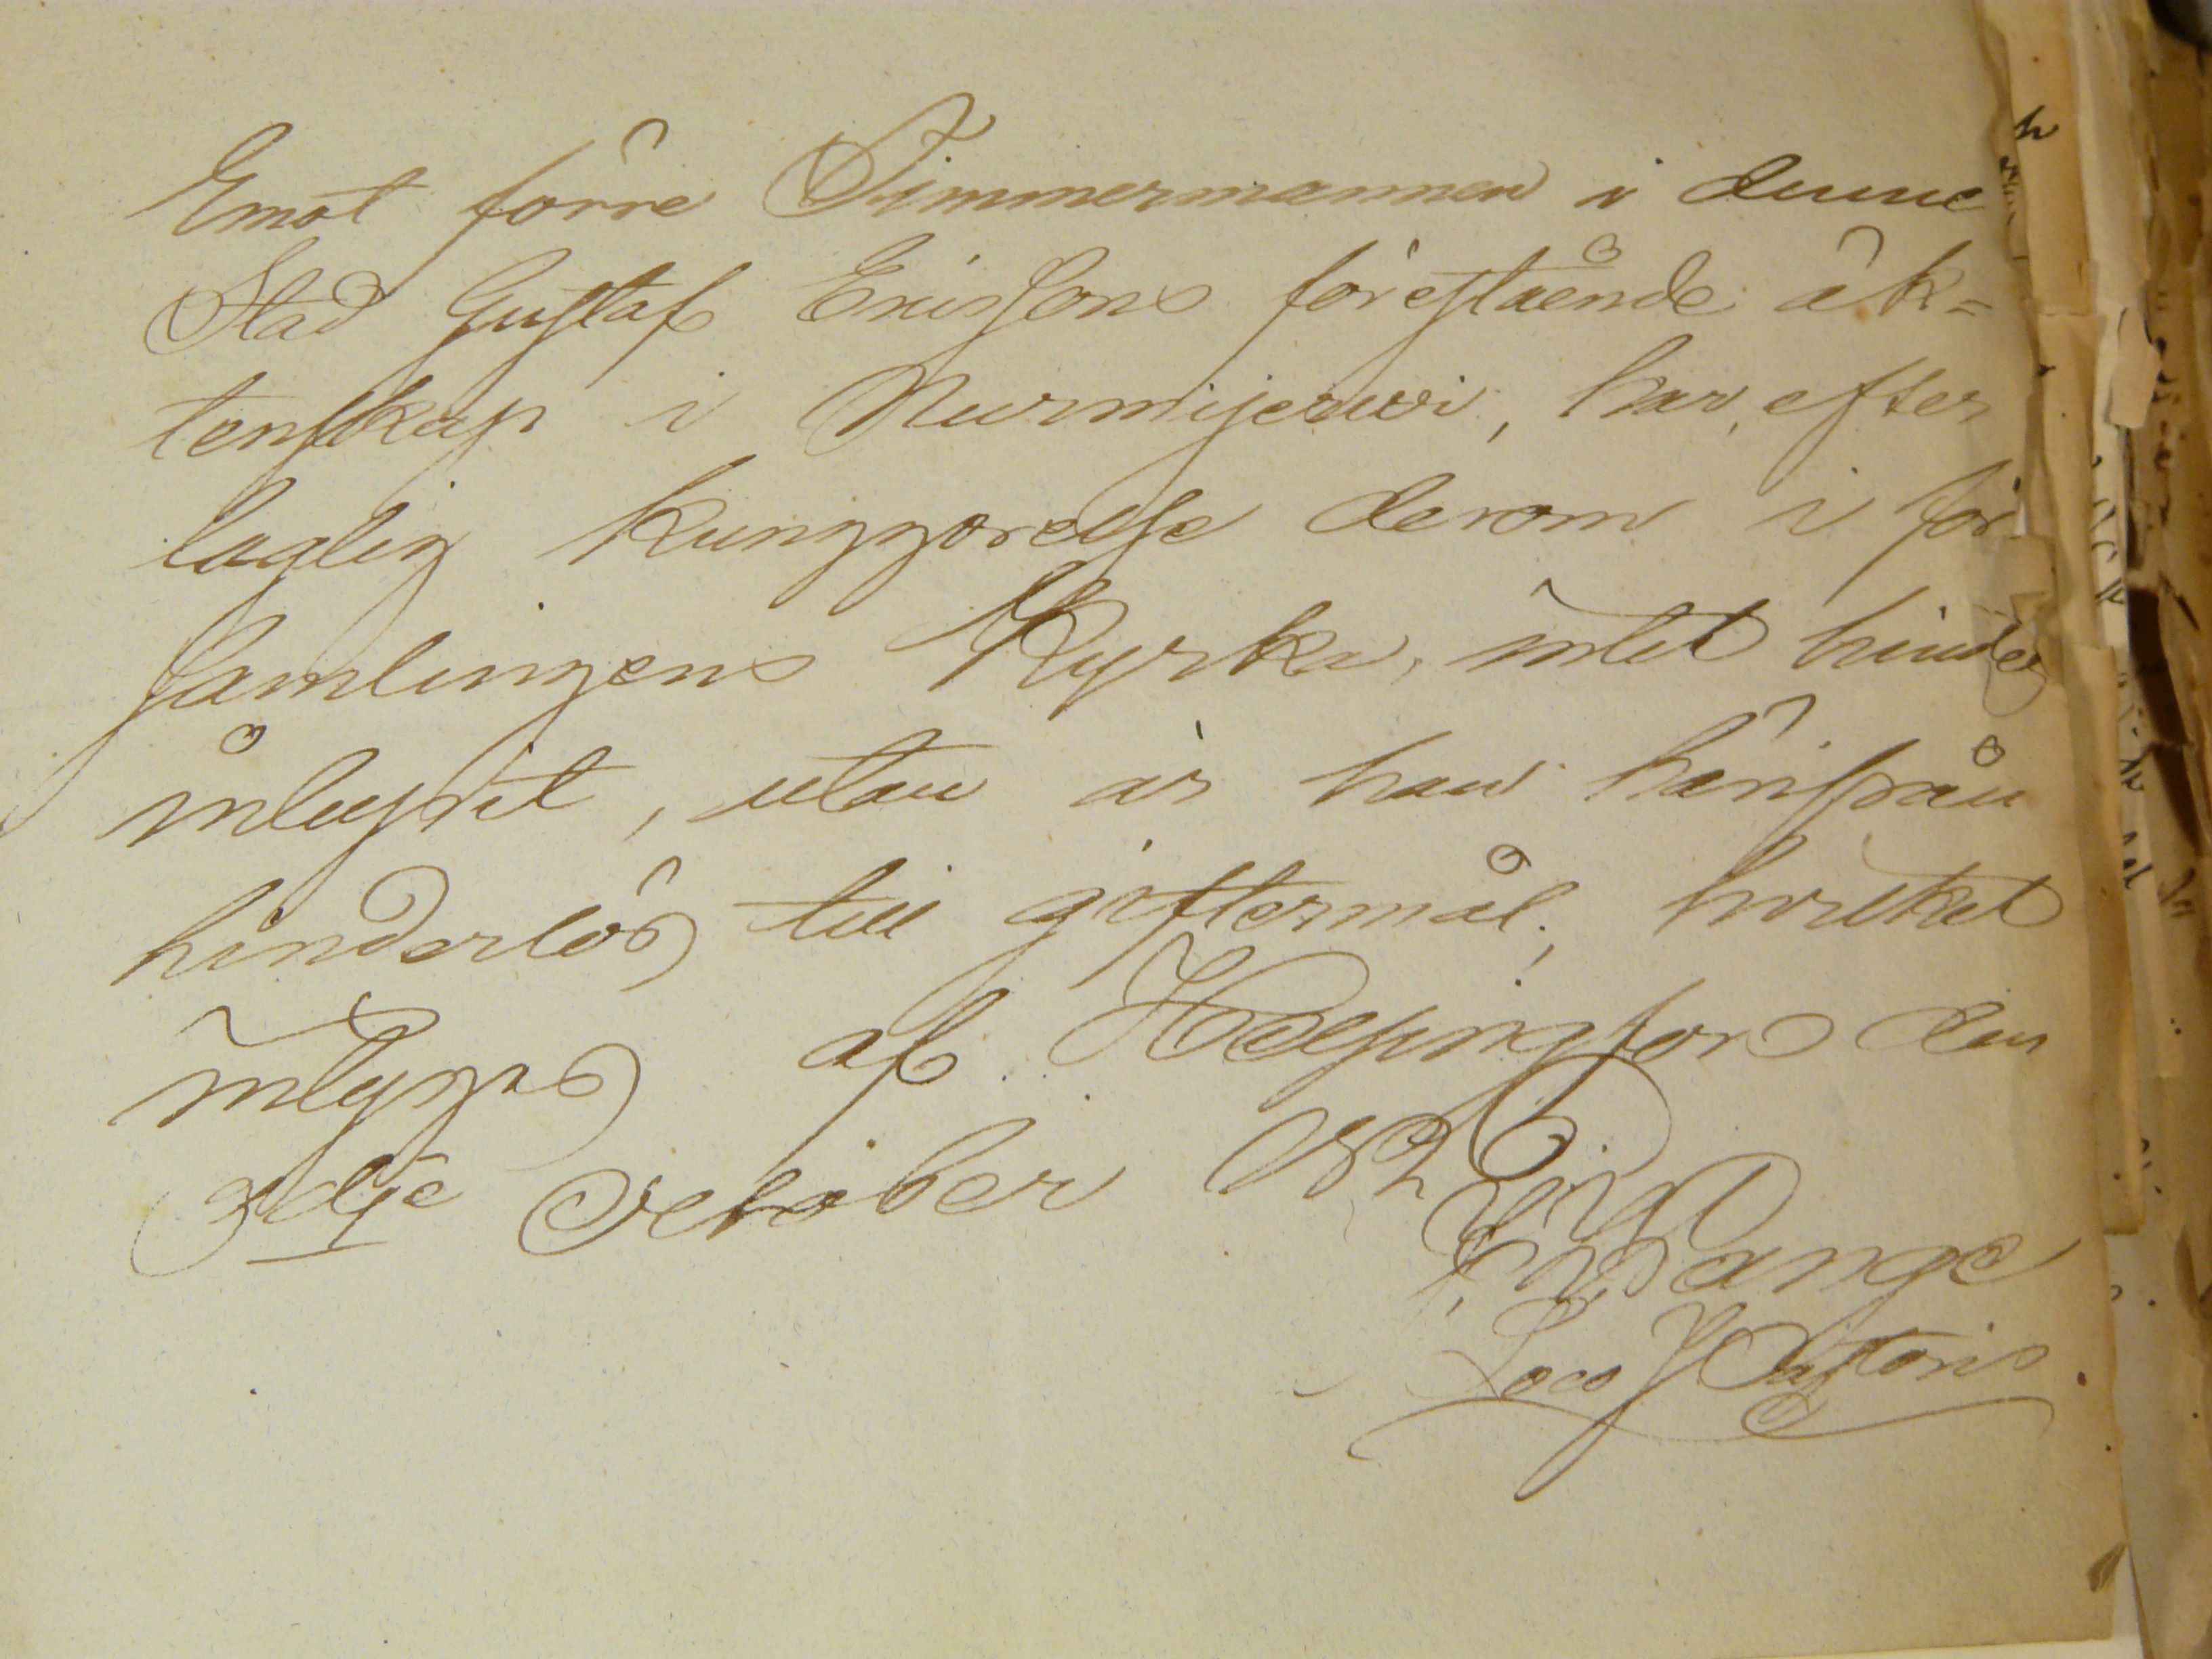 Emot förre Timmermannen i denne
Stad Gustaf Erissons förestående äk=
tenskap i Nurmijerwi, har, efter
laglig kungjörelse derom i för
samlingens Kyrka, intet hinder
inlupit, utan är han härifrån
hinderlös till giftermål; hvilket
intygas af Helsingfors den
3dje October 182
Loco Pastoris.